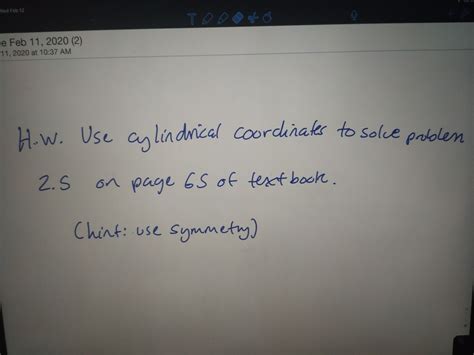 e Feb 11, 2020 (2)
11, 2020 at 10:37 AM
H.W. Use cylindrical coordinates to solve problem
2.5 on page 65 of textbook.
(hint: use symmetry)